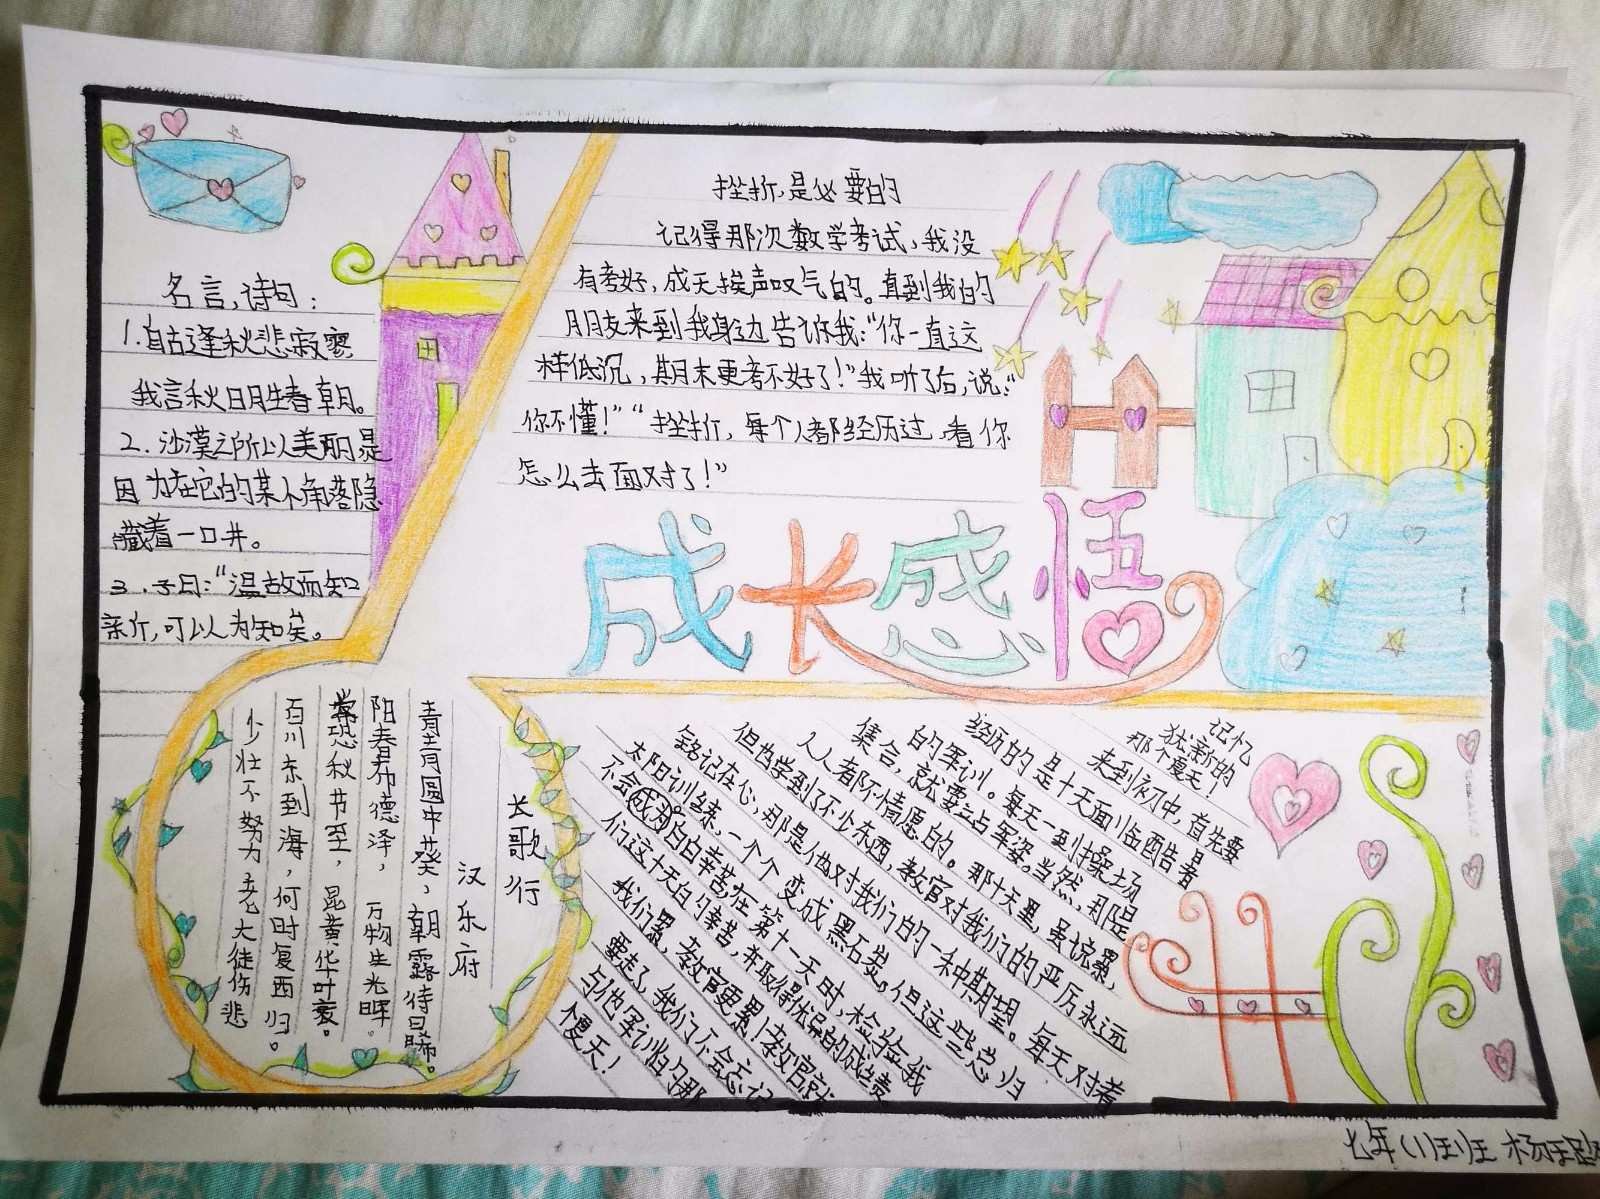 名言,诗句:
1.自古逢秋悲寂寥
我言秋日胜春朝。
2.沙漠之所以美丽是
因为在它的某个角落隐
藏着一口井。
3.子曰:“温故而知
亲斤,可以为知矣。
挫折,是必要的
记得那次数学考试,我没
有考好,成天挨声叹气的。直到我的
朋友来到我身边告诉我:“你一直这
样低沉,期末更考不好了!”我听了后,说:“
你不懂!”“挫折,每个人都经历过,看你
怎么去面对了!”
成长感悟
长歌行
汉乐府
青青园中葵,朝露待日晞。
阳春布德泽,万物生光晖。
常恐秋节至,焜黄华叶衰。
百川东到海,何时复西归。
少壮不努力老大徒伤悲
记忆
犹新的
那个夏天!
来到初中,首先要
经历的是十天面临酷暑
的军训。每天一到操场
集合,就要站军姿。当然,那是
人人都不情愿的。那十天里,虽说累,
但也学到了不少东西,教官对我们的严厉永远
铭记在心,那是他对我们的一种期望。每天对着
太阳训练,一个个变成黑石炭。但这些总归
不会成为白白辛苦,在第十一天时,检验我
们这十天的辛苦,并取得优异的成绩。
我们累,教官更累!教官就
要走了,我们不会忘记
与他军训归的那
个夏天!
七年(1)班 杨